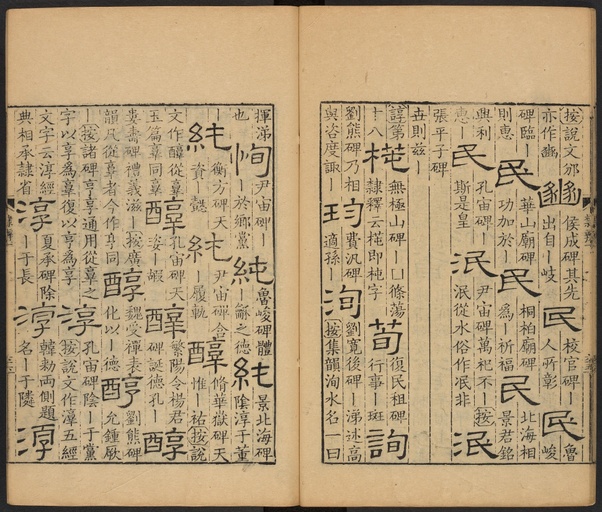 按說文邠
亦作豳
豳
侯成碑其先
出自|岐
民
校官碑|
人所彰
民
魯
峻
碑臨|
則惠
民
華山廟碑|
功加於|
民
桐柏廟碑
爲|祈福
民
北海相
景君銘
興利
惠|
民
孔宙碑|
斯是皇
泯
尹宙碑萬祀不|按
泯從水俗作泯非
泯
張平子碑
世則茲|
諄第
十八
杶
無極山碑|乚條蕩
隸釋云杶即杶字
荀
復民租碑
行事|斑
詢
劉熊碑乃相
與咨度諏|
費汎碑
適孫|
洵
劉寬後碑|涕述高
按集韻洵水名一曰
揮涕
也
恂
尹宙碑|
|於鄉黨
純
魯峻碑體
|龢之德
純
景北海碑
陰淳于董
純
衡方碑天
資|懿
屯
尹宙碑含
|履軌
醇
脩華嶽碑天
惟|祐按說
文作醇從𦎫
玉篇𦎫同
醇
孔宙碑天
姿|嘏
醇
繁陽令楊君
碑誕德孔|
醇
婁壽碑禮義滋|按廣
韻凡從𦎫者今作享同
醇
魏受禪表
化以|德
醇
劉熊碑
允鍾厥
|按諸碑享亨通用從𦎫之
字以享爲𦎫復以亨爲享
淳
孔宙碑陰|于黨
按說文作漳五經
文字云淳經
典相承隸省
淳
夏承碑除
|于長
淳
韓勑兩側題
名|于隣
淳